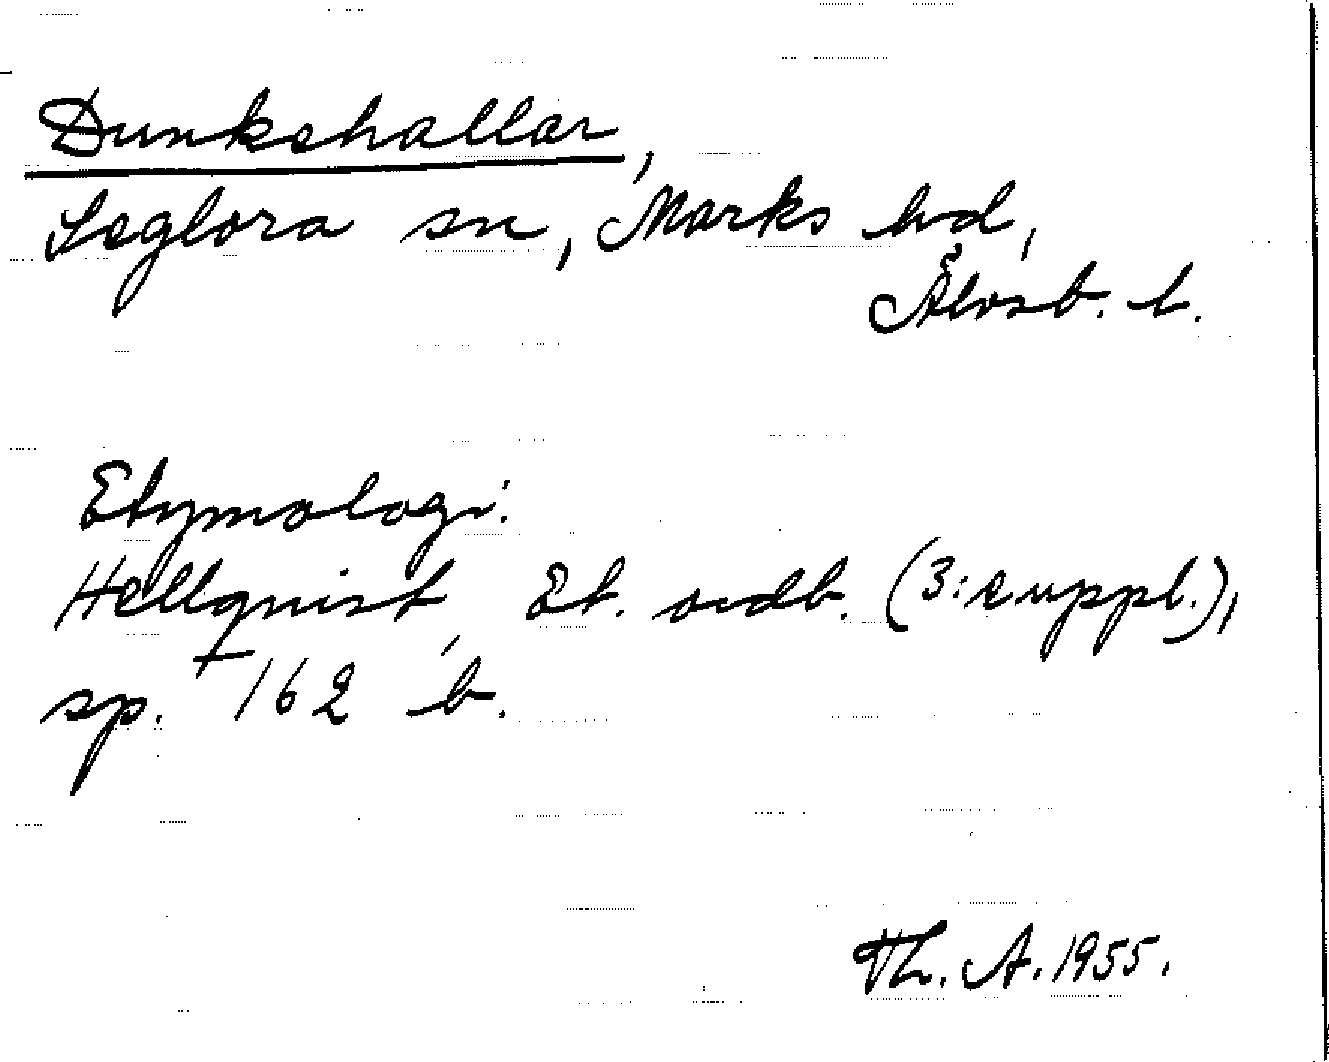 Dunkehallar,
Seglora sn, Marks hd,
Älvsb. l.
Etymologi:
Hellquist, Et. ordb. (3:e uppl.),
sp. 162 b.
Th. A. 1955.